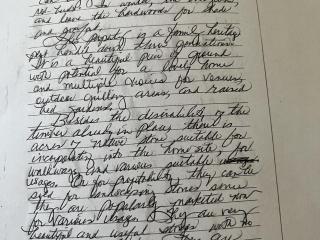 and leave the hardwoods for shade
and
This property is a family
handed down three generations.
It is a beautiful piece of ground
with potential for a lovely home
and multiple choices for various
outdoor grilling areas, and raised
bed gardens.
Besides the desirability of the
timber already in place there is
acres of native stone suitable for
incorporating into the home site, for
walkways and various suitable
usages. Or for profitability they can be
sold for landscaping stones since
they are popularly marketed now
for various usages. They are very
beautiful and useful stones with no